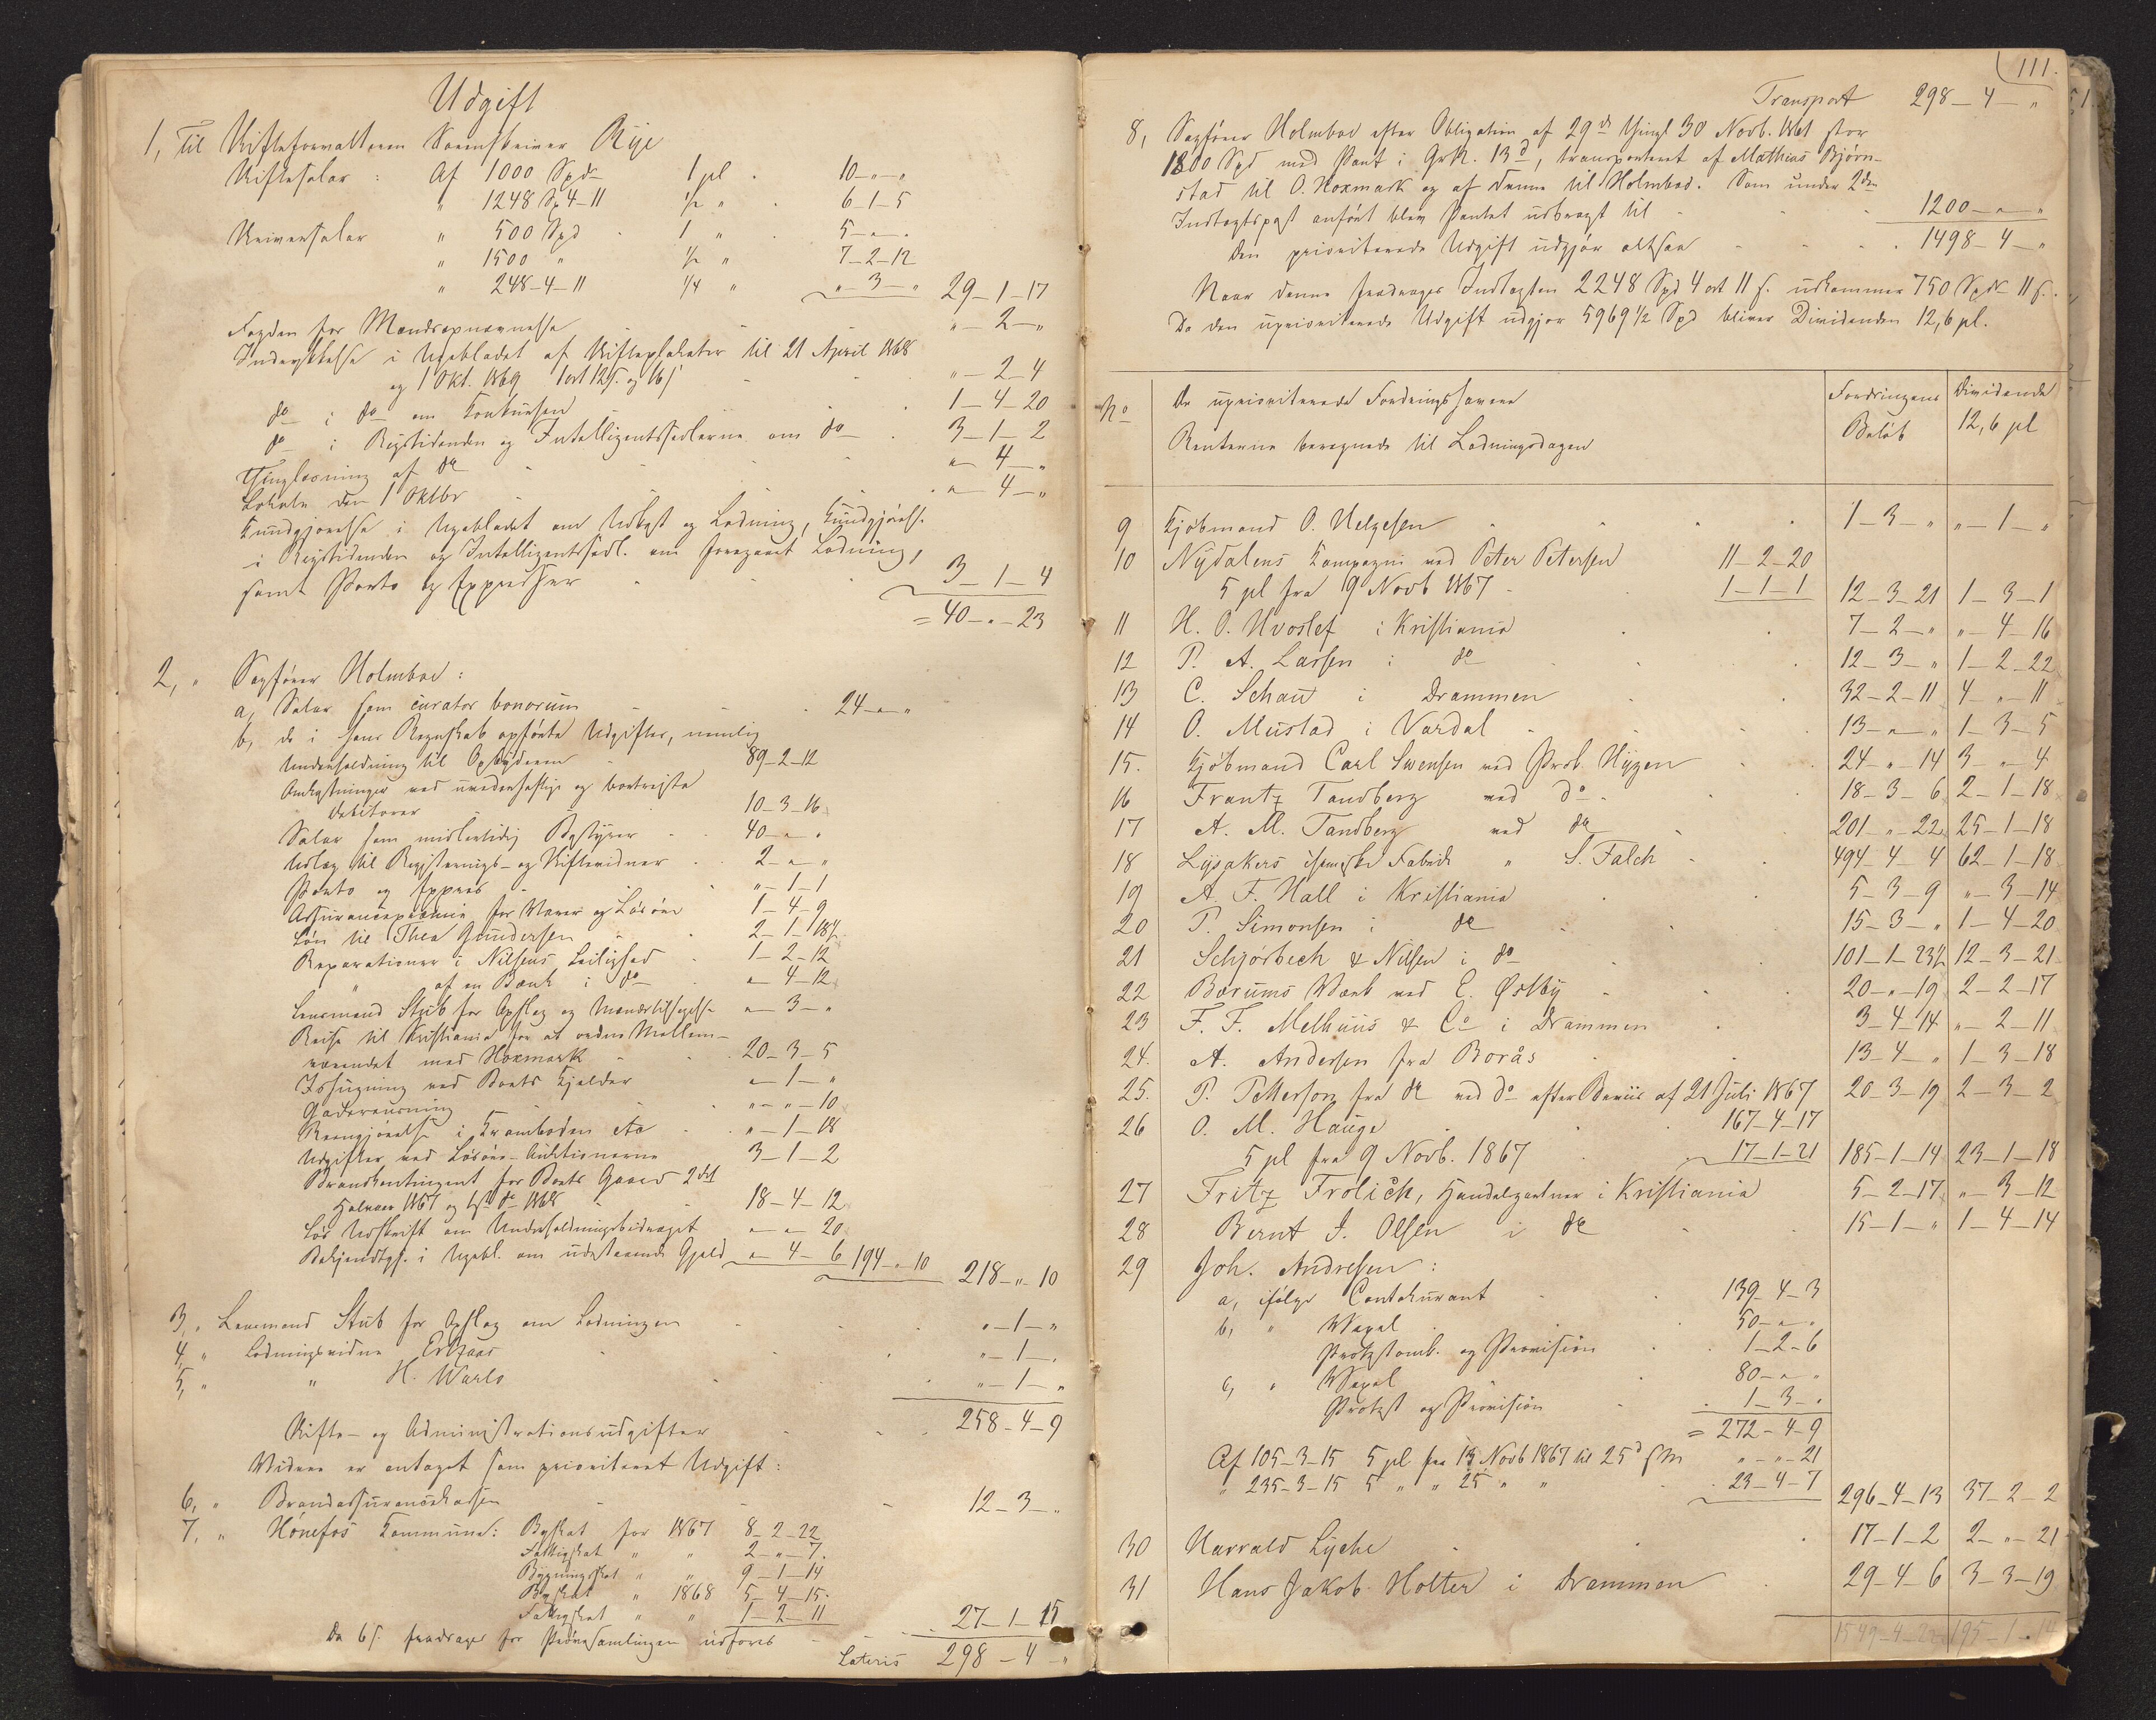 Udgift
1, Til Skifteforvalteren Sorenskriver Rye
Skiftesalær : Af 1000 Spd 1 pCt. 10-"-"
" 1248 Sp 4-11 ½ " 6-1-5
Universalær " 500 Spd 1 " 5-"-"
" 1500 " ½ " 7-2-12
" 248-4-11 ¼ " "-3-" 29-1-17
Fogden for Mændsopnævnelse "-2-"
Inderykkelse i Ugebladet af Skifteplakater til 21 April 1868
og 1 Okt. 1869 1 ort 12 s. og 16 s "-2-4
do i do om Konkursen 1-4-20
do i Rigstidenden og Intelligentssedlerne om do 3-1-2
Thinglæsning af do "-4-"
Lokale den 1 Oktbr "-4-"
Kundgjørelse i Ugebladet om Udkast og Lodning, Kundgjørelse
i Rigstidenden og Intelligentssedl. om foregaaet Lodning,
samt Porto og Expresser 3-1-4
= 40-"-23
2, " Sagfører Holmboe :
a, Salær som curator bonorum 24-"-"
b, de i hans Regnskab opførte Udgifter, nemlig
Underholdning til Opbyderen 89-2-12
Omkostninger ved uvederhæftige og bortreiste
Debitorer 10-3-16
Salær som midlertidig Bestyrer 40-"-"
Udlæg til Registrerings- og Skiftevidner 2-"-"
Porto og Expres "-1-1
Assurancepræmie for Varer og Løsøre 1-4-9
Løn til Thea Gundersen 2-1-18½
Reparationer i Nilsens Leilighed 1-2-12
" af en Bænk i do "-4-12
Lensmand Stub for Opslag og Mændstilsigelse "-3-"
Reise til Kristiania for at ordne Mellem-
værendet med Hoxmark 20-3-5
Ishugning ved Boets Kjelder "-1-"
Gaderensning "-"-10
Rengjørelse i Kramboden etc "-1-18
Udgifter ved Løsøre-Auktionerne 3-1-2
Brandkontingent for Boets Gaard 2det
Halvaar 1867 og 1ste do 1868 18-4-12
For Udskrift om Underholdningsbidraget "-"-20
Bekjendtgj. i Ugebl. om udestaaende Gjeld "-4-6 194-"-10 218-"-10
3, " Lensmand Stub for Opslag om Lodningen "-1-"
4, " Lodningsvidne Erkaas "-1-"
5, " " H. Warlo "-1-"
Skifte- og Administrationsudgifter 258-4-9
Videre er antaget som prioriteret Udgift :
6, " Brandassurancekassen 12-3-"
7, " Hønefos Kommune : Byskat for 1867 8-2-22
Fattigskat " " 2-"-7
Bygningsskat " " 9-1-14
Byskat " 1868 5-4-15
Fattigskat " " 1-2-11
27-1-15
Da 6 s. fradrages for Prøvesamlingen udføres
Lateris 298-4-"
111.
Transport 298-4-"
8, Sagfører Holmboe efter Obligation af 29de thingl 30 Novb. 1861 stor
1800 Spd med Pant i GrN. 13d, transporteret af Mathias Bjørn-
stad til O. Hoxmark og af denne til Holmboe. Som under 2den
Indtægtspost anført blev Pantet udbragt til 1200-"-"
Den prioriterede Udgift udgjør altsaa 1498-4-"
Naar denne fradrages Indtægten 2248 Spd 4 ort 11 s. udkommer 750 Spd " 11 s.
Da den uprioriterede Udgift udgjør 5969½ Spd bliver Dividenden 12,6 pCt.
No De uprioriterede Fordringshavere Fordringens Dividende
Renterne beregnede til Lodningsdagen Beløb 12,6 pCt
9 Kjøbmand O. Helgesen 1-3-" "-1-"
10 Nydalens Kompagni ved Peter Petersen 11-2-20
5 pCt fra 9 Novb 1867 1-1-1 12-3-21 1-3-1
11 H. O. Hvoslef i Kristiania 7-2-" "-4-16
12 P. A. Larsen i do 12-3-" 1-2-22
13 C. Schau i Drammen 32-2-11 4-"-11
14 O. Mustad i Vardal 13-"-" 1-3-5
15. Kjøbmand Carl Swensen ved Prok. Hygen 24-"-14 3-"-4
16 Frantz Tandberg ved do 18-3-6 2-1-18
17 A. M. Tandberg ved do 201-"-22 25-1-18
18 Lysakers chemiske Fabrik " S. Falch 494-4-4 62-1-18
19 A. F. Hall i Kristiania 5-3-9 "-3-14
20 P. Simonsen i do 15-3-" 1-4-20
21 Schjørbech & Nilsen i do 101-1-23½ 12-3-21
22 Bærums Værk ved E. Østby 20-"-19 2-2-17
23 F. F. Melhuus & Co i Drammen 3-4-14 "-2-11
24. A. Andersen fra Borås 13-4-" 1-3-18
25. P. Petterson fra do ved do efter Beviis af 21 Juli 1867 20-3-19 2-3-2
26 O. M. Hauge 167-4-17
5 pCt fra 9 Novb. 1867 17-1-21 185-1-14 23-1-18
27 Fritz Frolich, Handelsgartner i Kristiania 5-2-17 "-3-12
28 Bernt J. Olsen i do 15-1-" 1-4-14
29 Joh. Andresen :
a, ifølge Contokurant 139-4-3
b, " Vexel 50-"-"
Protestomk. og Provision 1-2-6
c, " Vexel 80-"-"
Protest og Provision 1-3-"
= 272-4-9
Af 105-3-15 5 pCt fra 13 Novb 1867 til 25d s M "-"-21
" 235-3-15 5 " " 25 " " 23-4-7 296-4-13 37-2-2
30 Harrald Lyche 17-1-2 2-"-21
31 Hans Jakob Holter i Drammen 29-4-6 3-3-19
1549-4-22 195-1-14